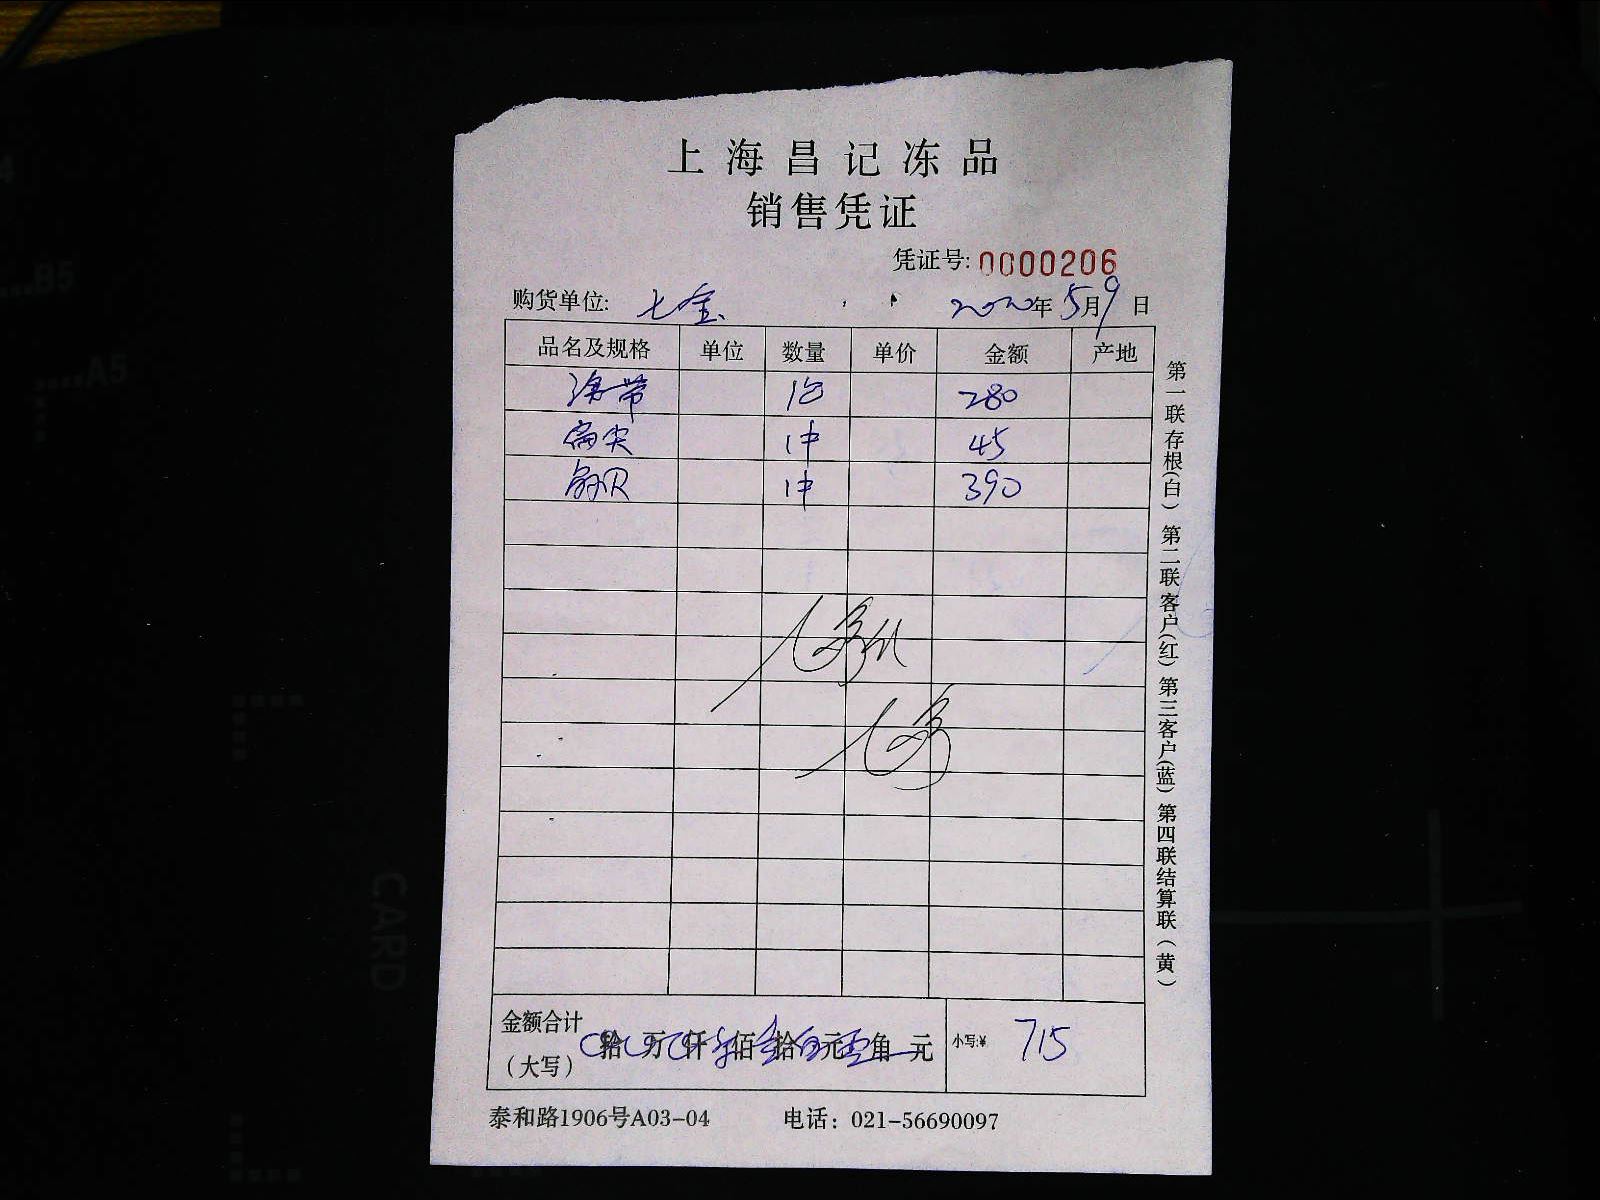 上海昌记冻品
销售凭证
凭证号: 0000206
购货单位: 七宝 2020年5月9日
品名及规格 单位 数量 单价 金额 产地
海带 1包 280
扁尖 1件 45
1件 390
金额合计
(大写) 拾 万 仟 佰 拾 元 角 元 小写:¥ 715
泰和路1906号A03-04 电话: 021-56690097
第一联存根(白) 第二联客户(红) 第三客户(蓝) 第四联结算联(黄)
A5
B5
CARD